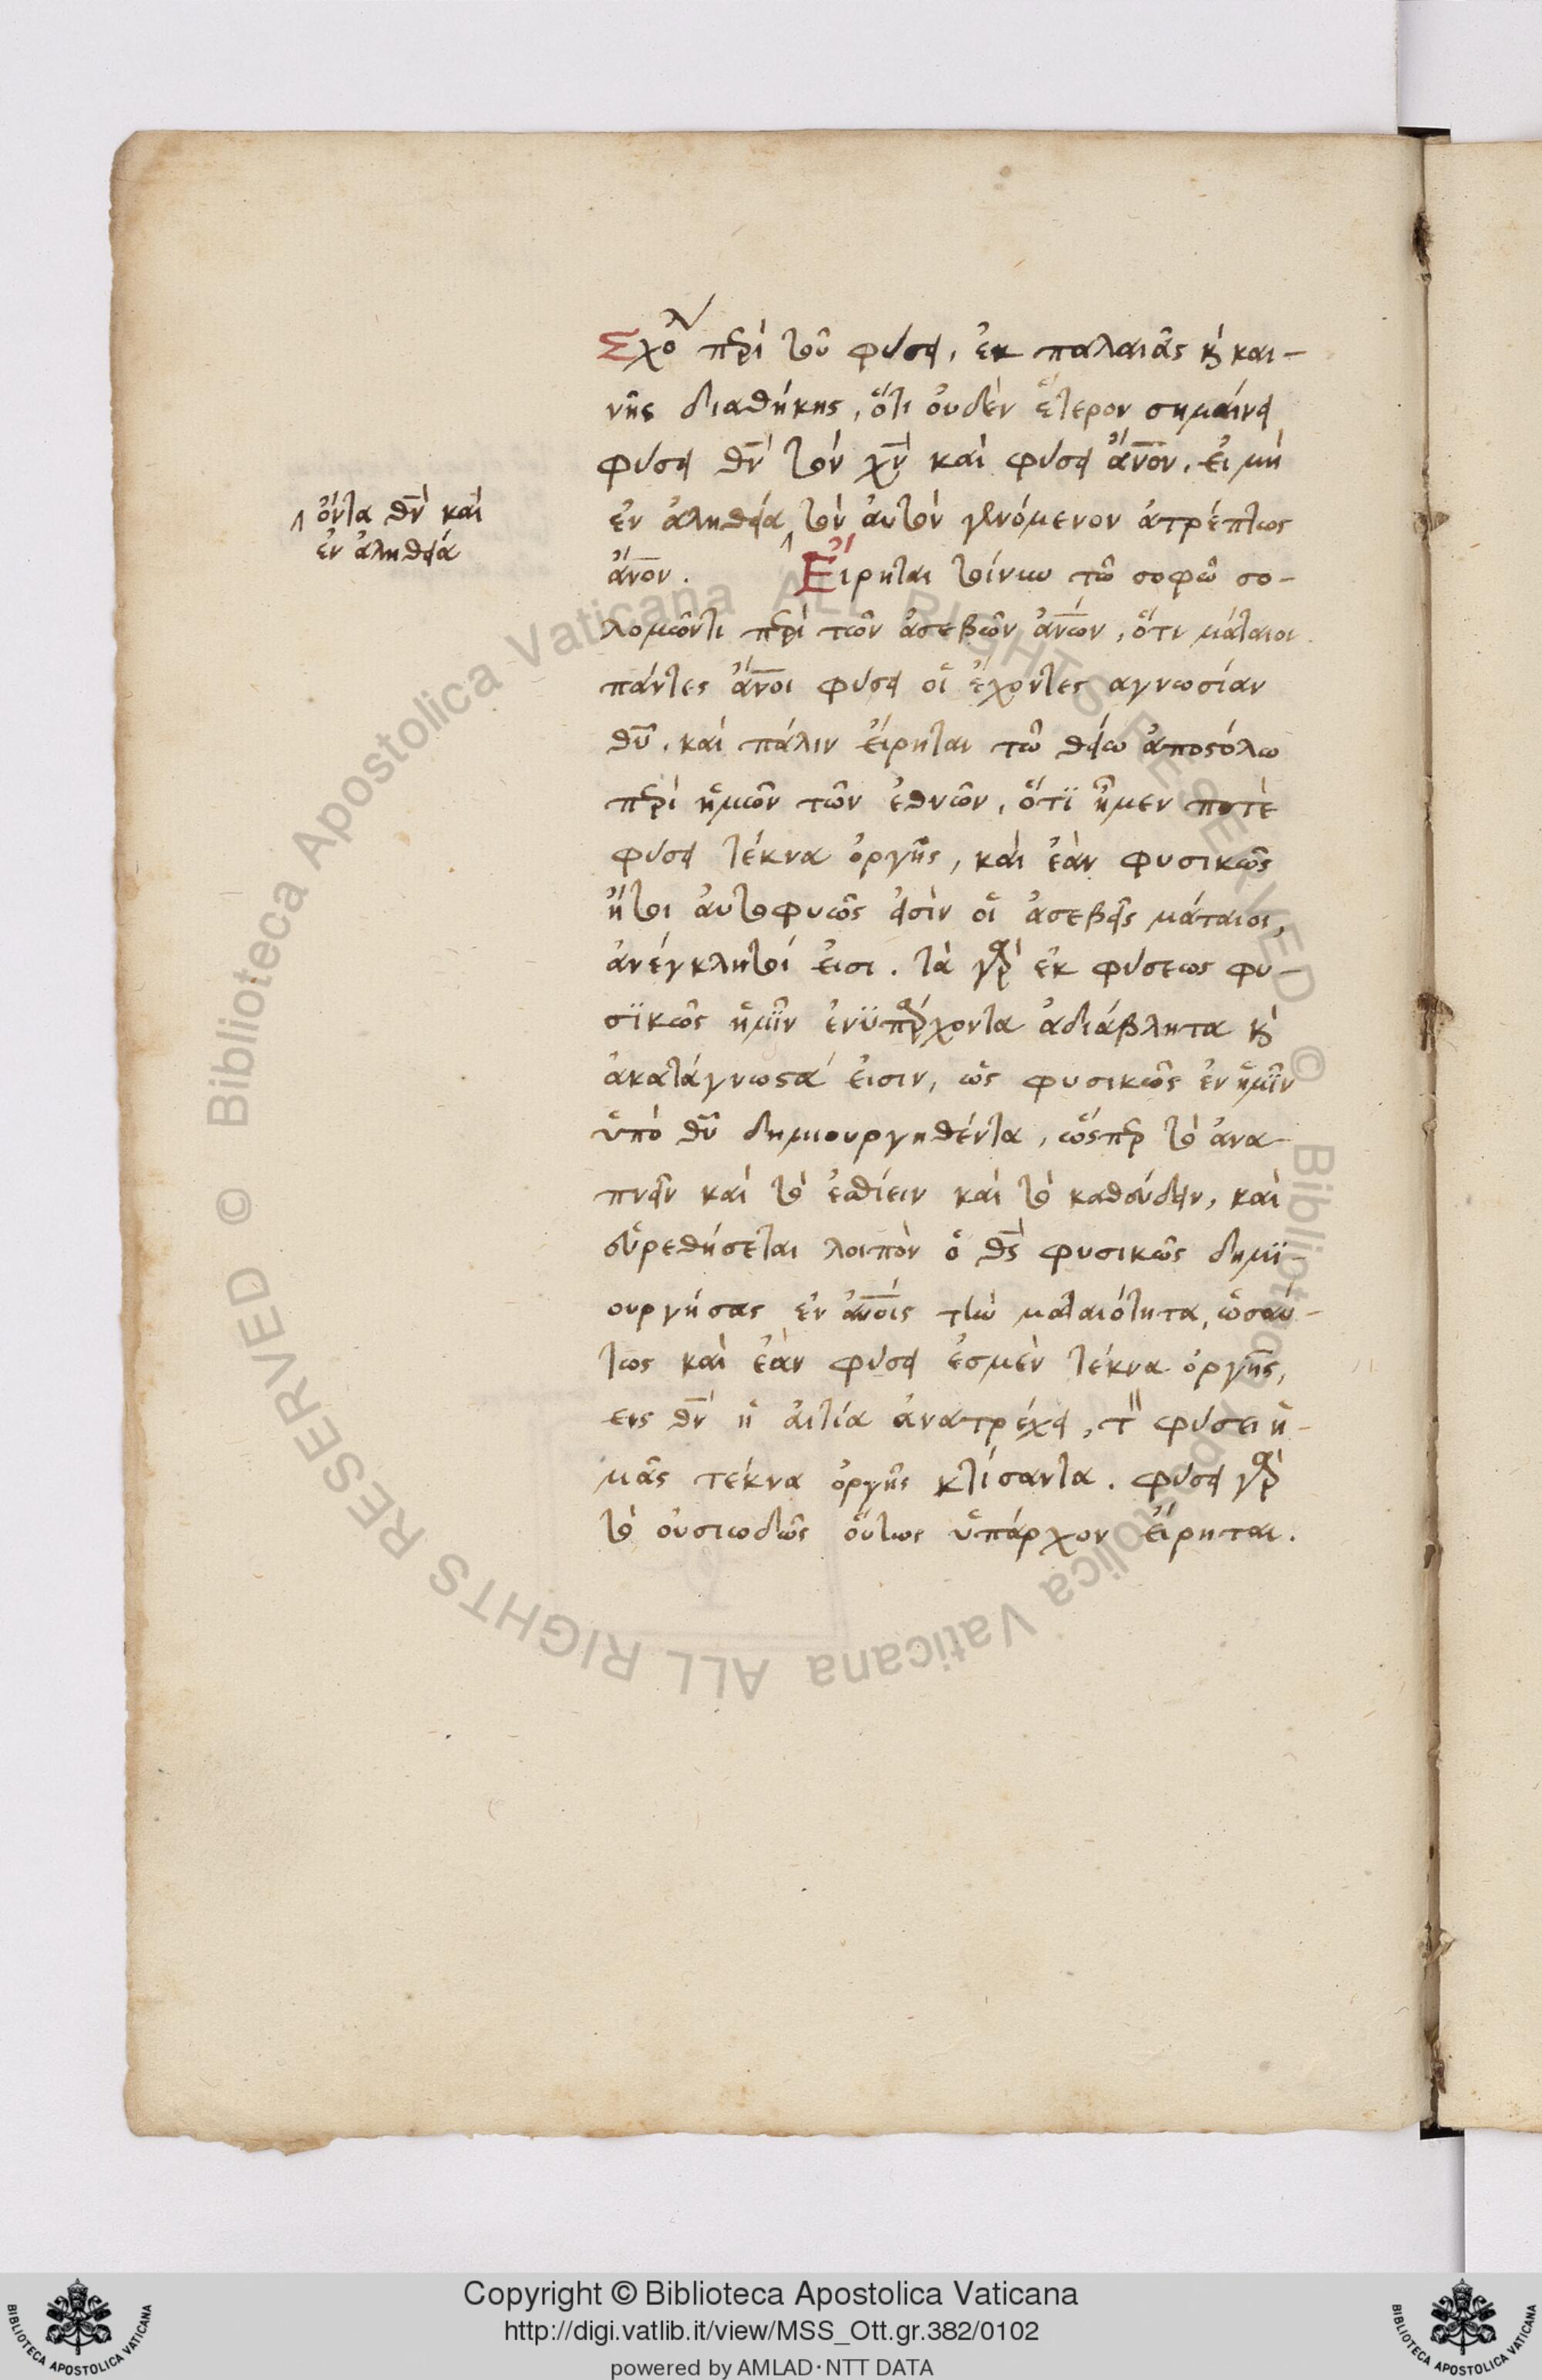 Σχολ πρὶ τοῦ φύσει, ἐκ παλαιᾶς κ̀ και-
νῆς διαθήκης, ὅτι οὐδὲν ἕτερον σημαίνει
φύσει θν̅ τὸν χν̅ καὶ φύσει ἄνο̅ν, εἰ μὴ
ἐν ἀληθείᾳ τὸν αὐτὸν γενόμενον ἀτρέπτως
ἄνο̅ν. Εἴρηται τοίνυν τῶ σοφῶ σο-
λομῶντι πρὶ τῶν ἀσεβῶν ἀνω̅ν, ὅτι μάταιοι
πάντες ἄνο̅ι φύσει οἱ ἔχοντες αγνωσίαν
θυ̅. καὶ πάλιν εἴρηται τῶ θείω ἀποστόλω
πρὶ ἡμῶν τῶν ἐθνῶν, ὅτϊ ἦμεν ποτὲ
φύσει τέκνα ὀργῆς, καὶ ἐὰν φυσικῶς
ἤτοι αὐτοφυῶς εἰσὶν οἱ ἀσεβεῖς μάταιοι,
ἀνέγκλητοί εἰσι. τὰ γὰρ ἐκ φύσεως φυ-
σϊκῶς ἡμῖν ἐνϋπάρχοντα ἀδιάβλητα κ̀
ἀκατάγνωστά εἰσιν, ὡς φυσικῶς ἐν ἡμῖν
ὑπὸ θυ̅ δημιουργηθέντα, ὥσπερ τὸ ἀνα-
πνεῖν καὶ τὸ ἐσθίειν καὶ τὸ καθεύδειν, καὶ
εὑρεθήσεται λοιπὸν ὁ θς̅ φυσικῶς δημϊ-
ουργήσας ἐν ἀνο̅ις τὴν ματαιότητα, ὡσαύ-
τως καὶ ἐὰν φύσει ἐσμὲν τέκνα ὀργῆς,
εις θν̅ ἡ αἰτία ἀνατρέχει, τ̏ φύσει ἡ-
μᾶς τέκνα ὀργῆς κτίσαντα. φύσει γὰρ
τὸ οὐσιωδῶς οὕτως ὑπάρχον εἴρηται.
ὄντα θν̅ καὶ
ἐν ἀληθείᾳ
© Biblioteca Apostolica Vaticana ALL RIGHTS RESERVED © Biblioteca Apostolica Vaticana ALL RIGHTS RESERVED
Copyright © Biblioteca Apostolica Vaticana
http://digi.vatlib.it/view/MSS_Ott.gr.382/0102
powered by AMLAD·NTT DATA
BIBLIOTECA APOSTOLICA VATICANA
BIBLIOTECA APOSTOLICA VATICANA